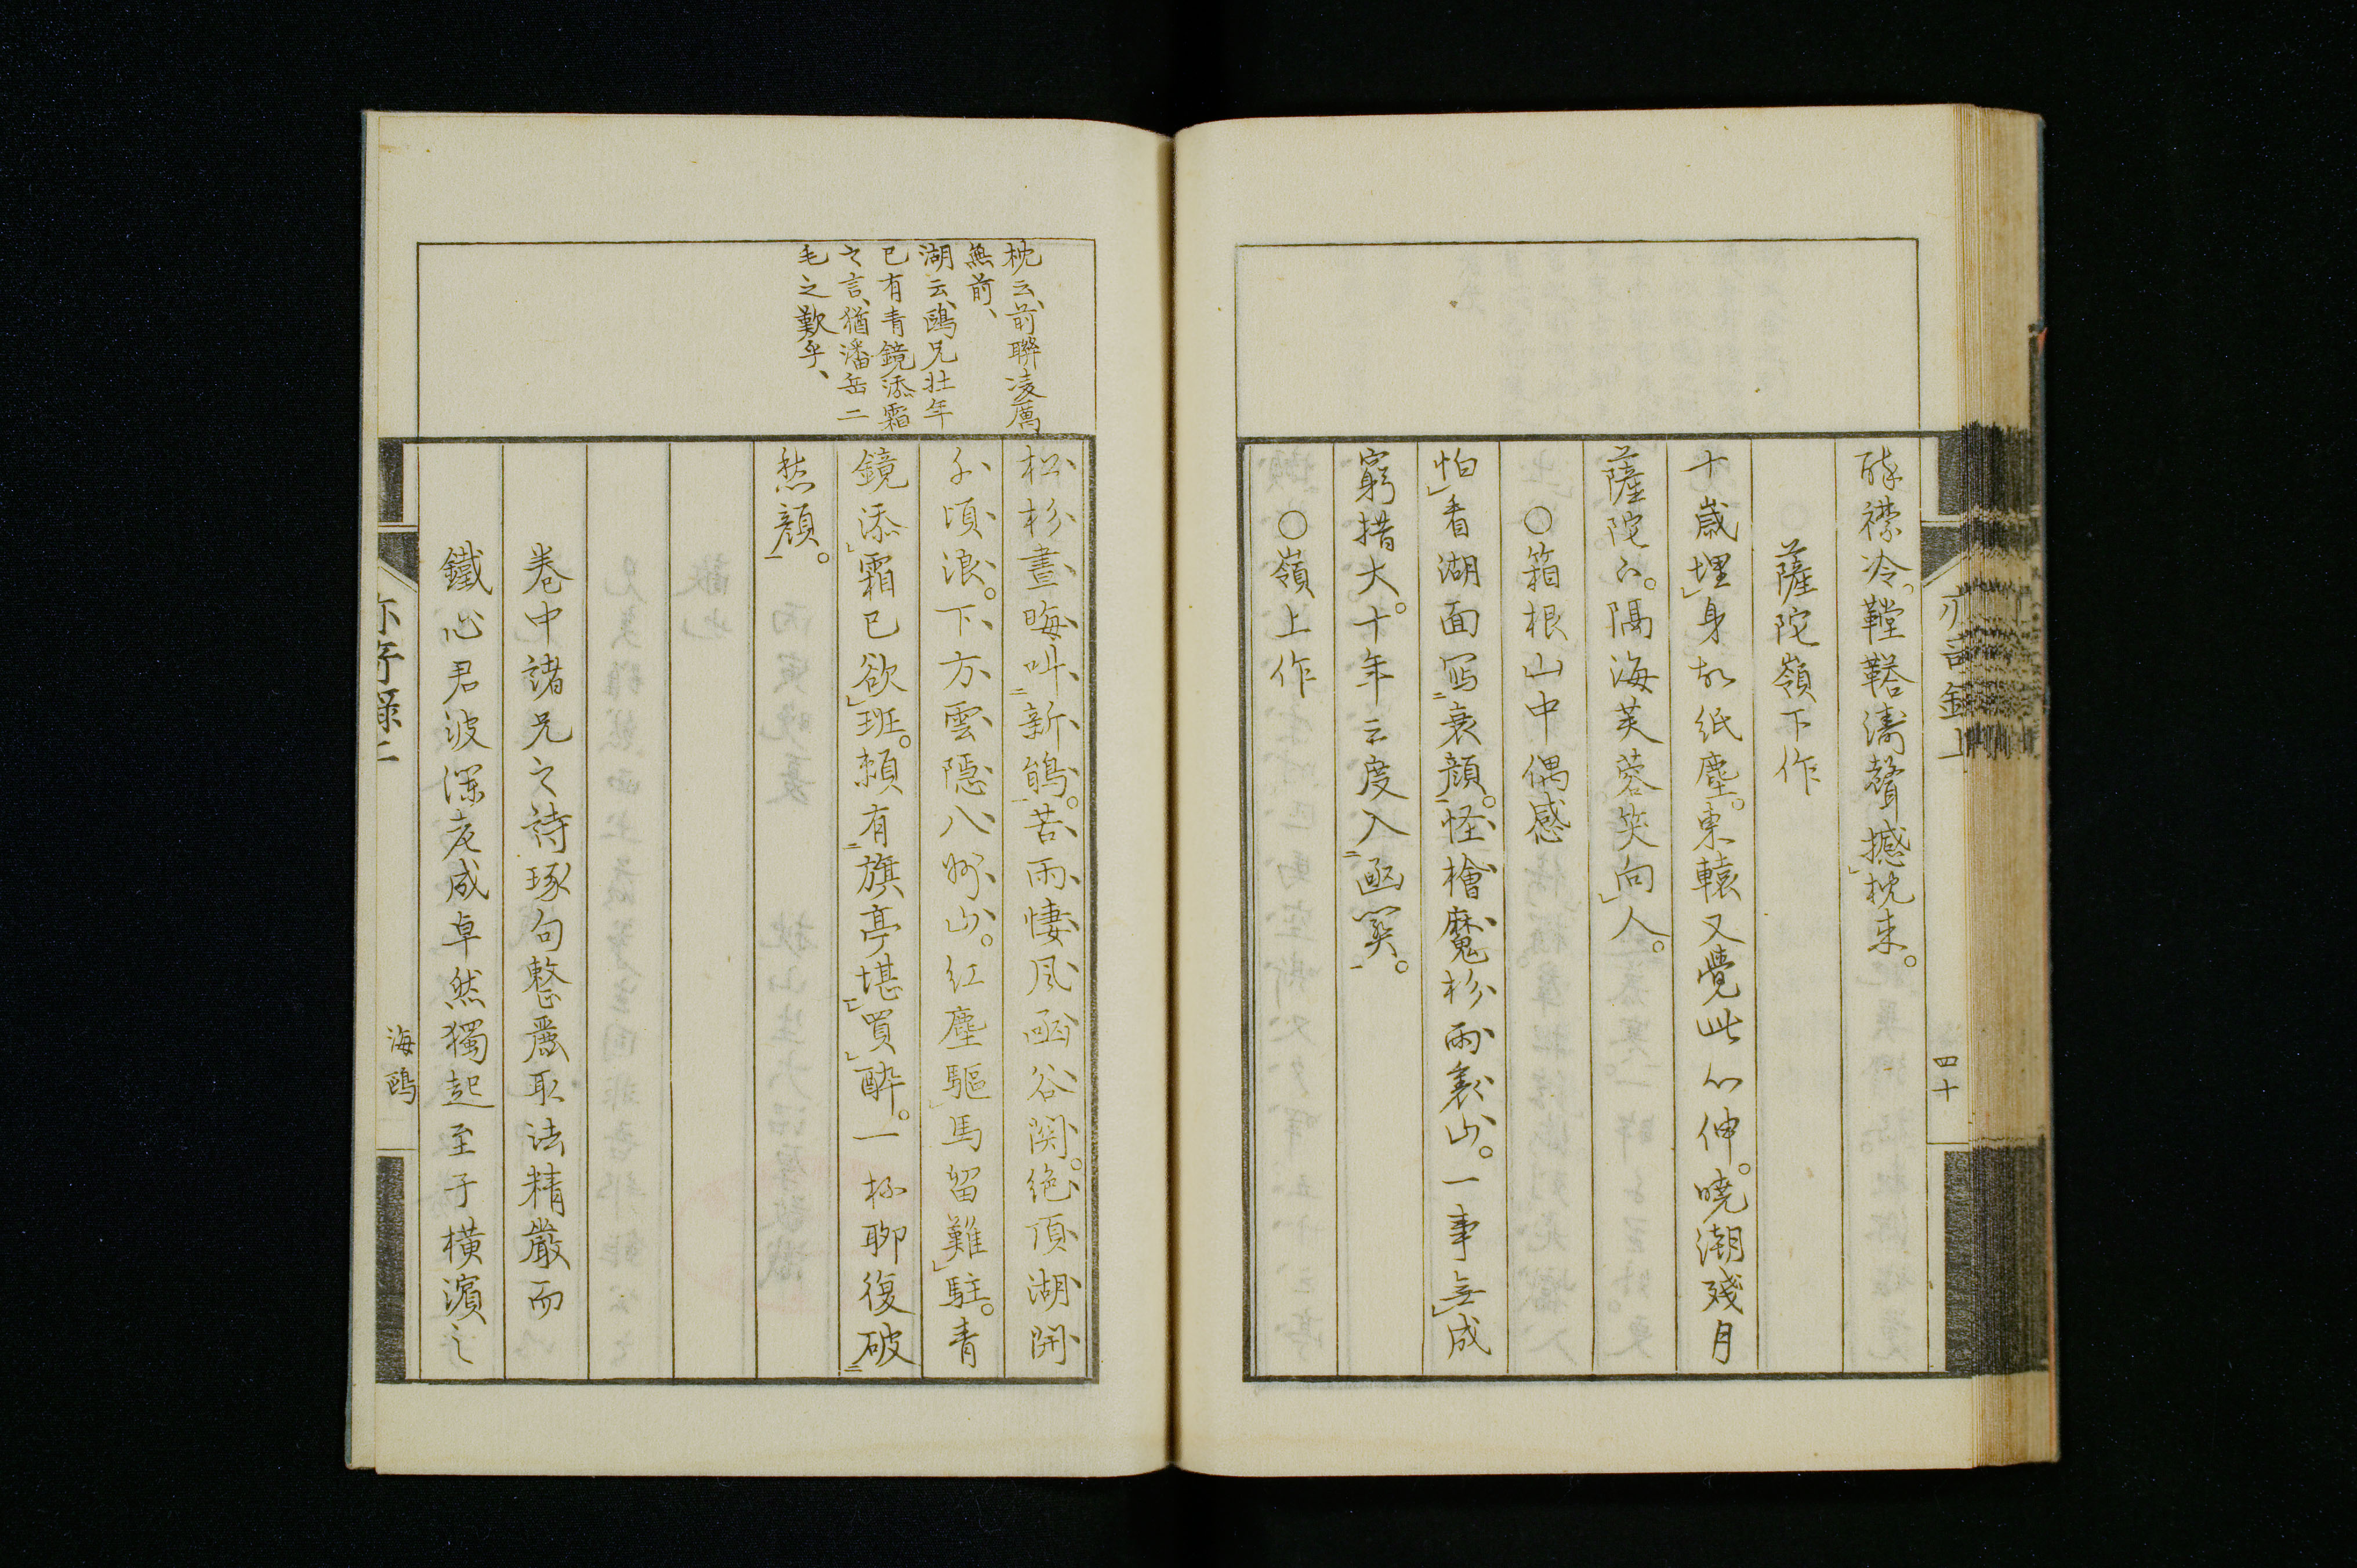 醉襟冷。鞺鞳濤聲撼枕来。
薩陀嶺下作
十歳埋身故紙塵。東轅又覺此心伸。曉潮殘月
薩陀下。隔海芙蓉笑向人。
○箱根山中偶感
怕看湖面写衰顔。怪檜魔杉雨裂山。一事無成
窮措大。十年三度入函関。
○嶺上作
四十
枕云、前聯凌厲
無前、
湖云、鷗兄壮年
已有青鏡添霜
之言、猶潘岳二
毛之歎乎、
松杉晝晦叫新鵑。苦雨悽風函谷関。絶頂湖開
千頃浪。下方雲隱八州山。紅塵驅馬留難駐。青
鏡添霜已欲班。頼有旗亭堪買醉。一杯聊復破
愁顔。
巻中諸兄之詩琢句整麗取法精厳而
鐵心君波深老成卓然獨起至于横濱之
海鷗